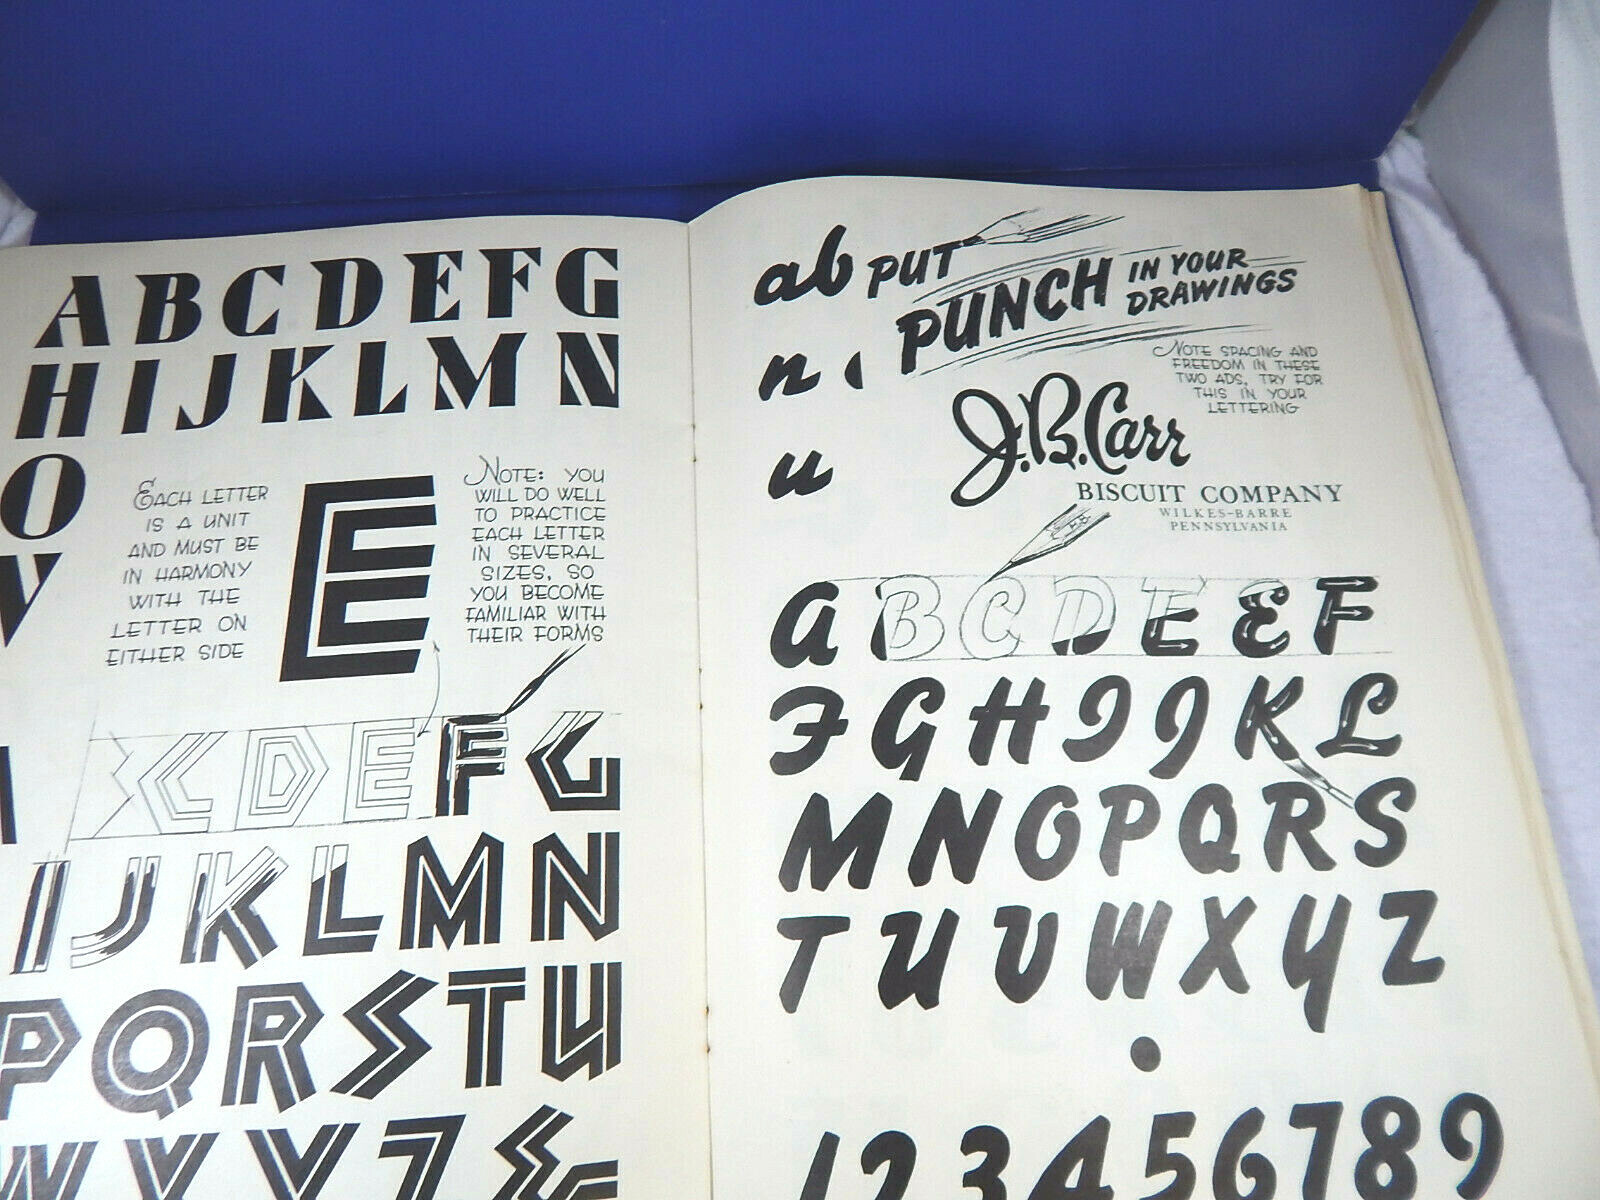 ABCDEFG
HIJKLMN
O
V
EACH LETTER
IS A UNIT
AND MUST BE
IN HARMONY
WITH THE
LETTER ON
EITHER SIDE
E
NOTE: YOU
WILL DO WELL
TO PRACTICE
EACH LETTER
IN SEVERAL
SIZES, SO
YOU BECOME
FAMILIAR WITH
THEIR FORMS
CDEFG
IJKLMN
PQRSTU
WXYZ&
ab
n
u
PUT
PUNCH IN YOUR
DRAWINGS
NOTE SPACING AND
FREEDOM IN THESE
TWO ADS, TRY FOR
THIS IN YOUR
LETTERING
J.B.Carr
BISCUIT COMPANY
WILKES-BARRE
PENNSYLVANIA
ABCDEEF
FGHIJKL
MNOPQRS
TUVWXYZ
123456789